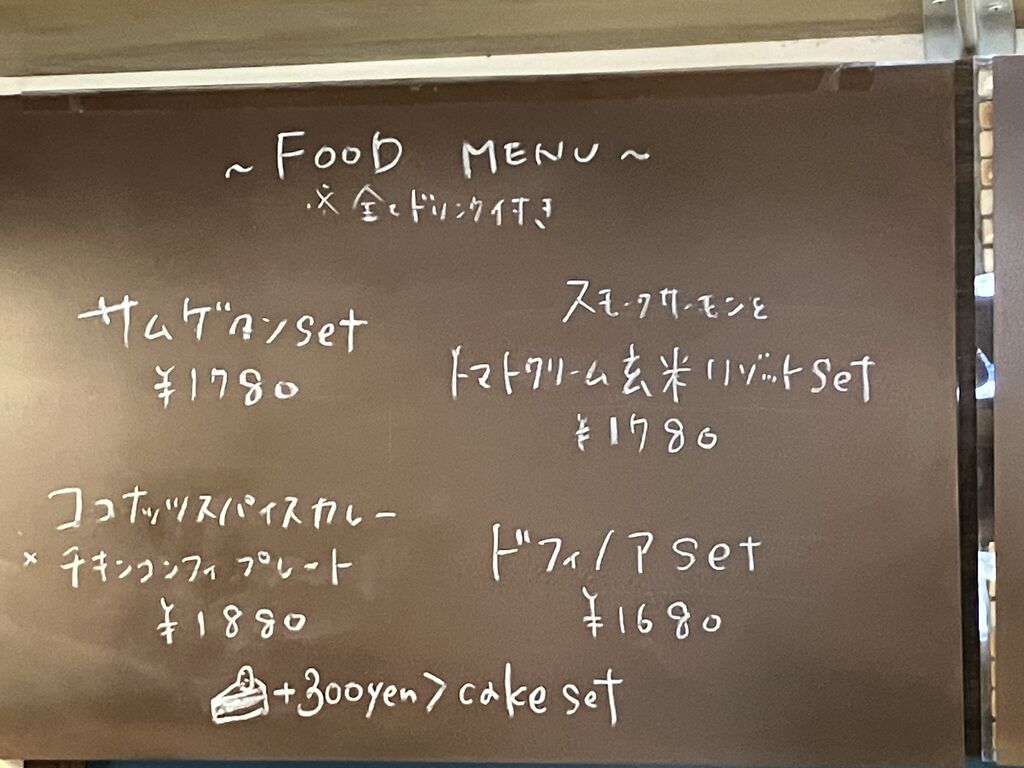 ~ FOOD MENU ~
※全てドリンク付き
サムゲタンset
¥1780
スモークサーモンと
トマトクリーム玄米リゾットset
¥1780
ココナッツスパイスカレー
× チキンコンフィ プレート
¥1880
ドフィノア set
¥1680
+300yen > cake set